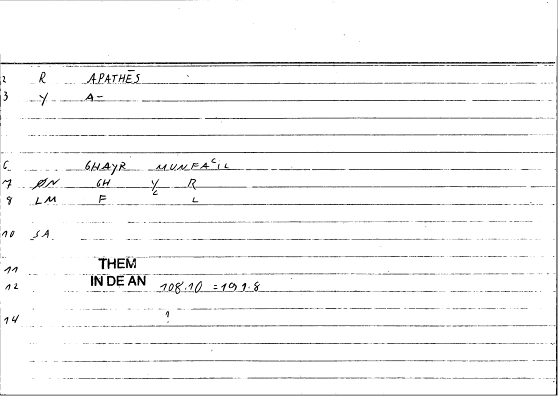 2 R APATHĒS
3 Y A-
6 GHAYR MUNFAᶜIL
7 ØN GH Y R
8 LM F ᶜ L
10 SA
11 THEM
12 IN DE AN 108.10 = 191.8
14 1